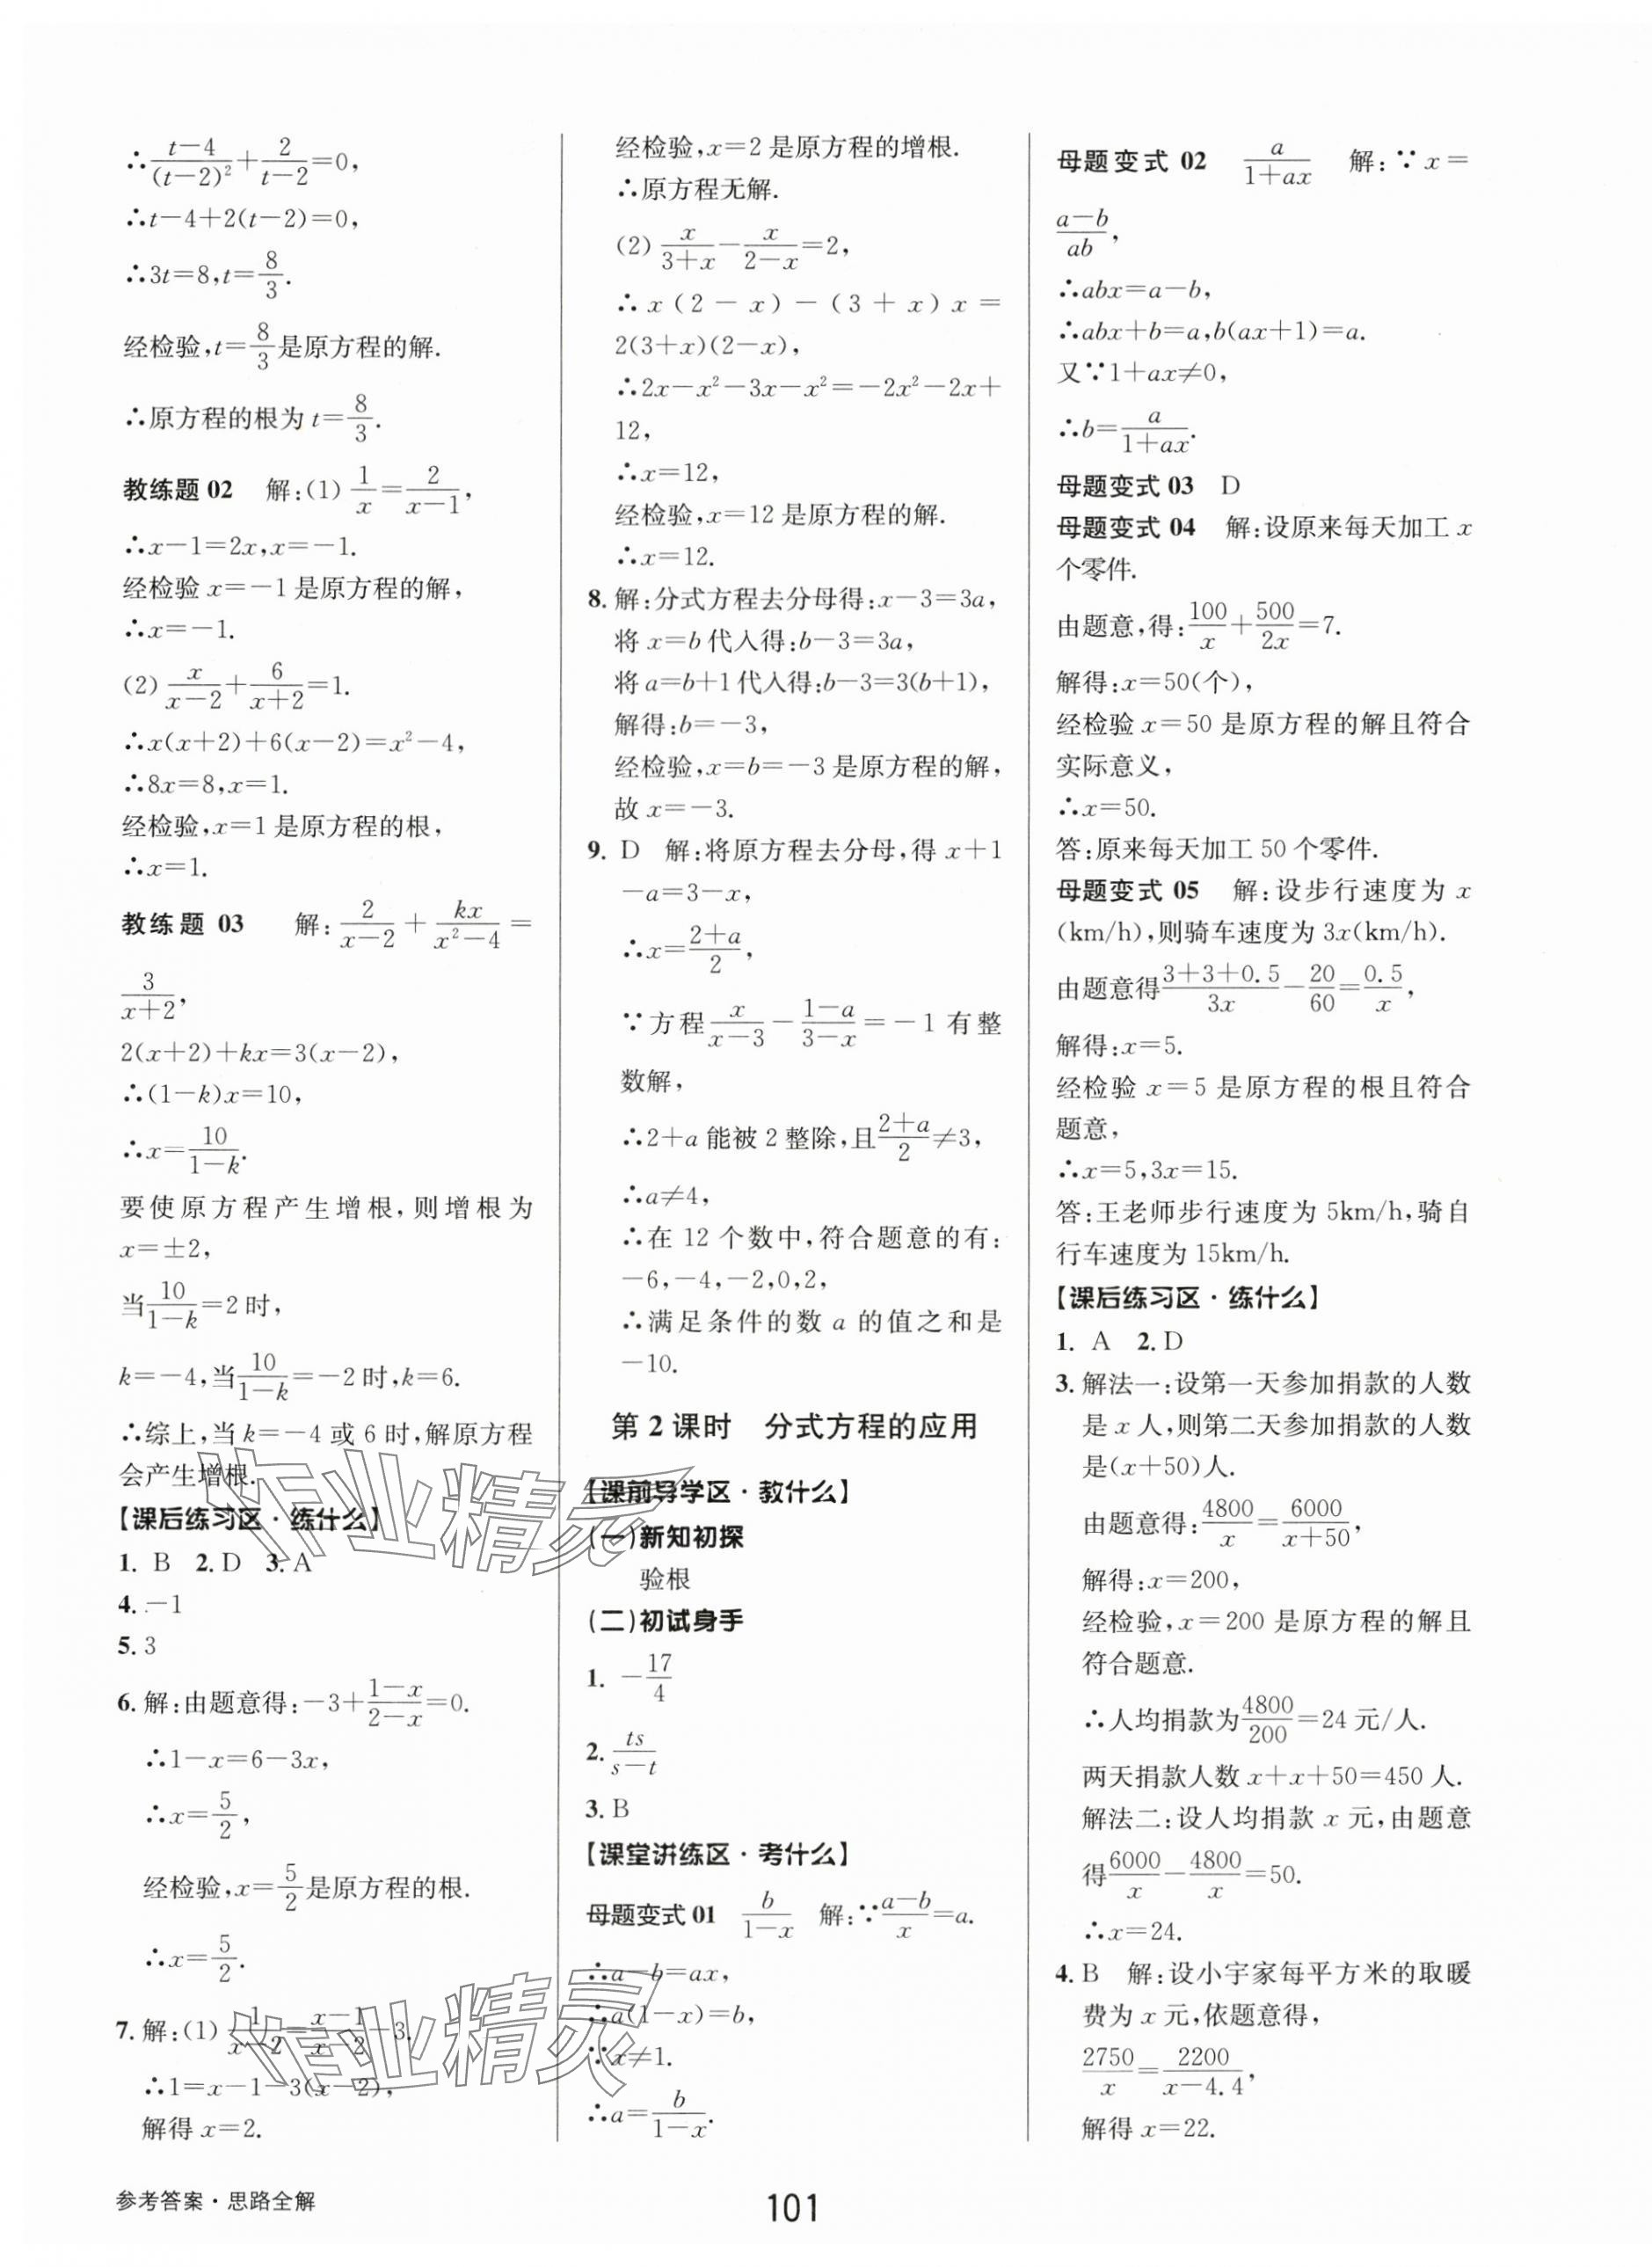 ∴(t−4)/(t−2)²+2/(t−2)=0,
∴t−4+2(t−2)=0,
∴3t=8,t=8/3.
经检验,t=8/3是原方程的解.
∴原方程的根为 t=8/3.
教练题 02 解:(1) 1/x=2/(x−1),
∴x−1=2x,x=−1.
经检验 x=−1 是原方程的解,
∴x=−1.
(2) x/(x−2)+6/(x+2)=1.
∴x(x+2)+6(x−2)=x²−4,
∴8x=8,x=1.
经检验,x=1 是原方程的根,
∴x=1.
教练题 03 解: 2/(x−2)+kx/(x²−4)=
3/(x+2),
2(x+2)+kx=3(x−2),
∴(1−k)x=10,
∴x=10/(1−k).
要使原方程产生增根,则增根为
x=±2,
当10/(1−k)=2 时,
k=−4,当10/(1−k)=−2 时,k=6.
∴综上,当 k=−4 或 6 时,解原方程
会产生增根.
【课后练习区·练什么】
1. B 2. D 3. A
4. −1
5. 3
6. 解:由题意得:−3+(1−x)/(2−x)=0.
∴1−x=6−3x,
∴x=5/2,
经检验,x=5/2是原方程的根.
∴x=5/2.
7. 解:(1) 1/(x−2)=(x−1)/(x−2)−3.
∴1=x−1−3(x−2),
解得 x=2.
经检验,x=2 是原方程的增根.
∴原方程无解.
(2) x/(3+x)−x/(2−x)=2,
∴x(2−x)−(3+x)x=
2(3+x)(2−x),
∴2x−x²−3x−x²=−2x²−2x+
12,
∴x=12,
经检验,x=12 是原方程的解.
∴x=12.
8. 解:分式方程去分母得:x−3=3a,
将 x=b 代入得:b−3=3a,
将 a=b+1 代入得:b−3=3(b+1),
解得:b=−3,
经检验,x=b=−3 是原方程的解,
故 x=−3.
9. D 解:将原方程去分母,得 x+1
−a=3−x,
∴x=(2+a)/2,
∵方程x/(x−3)−(1−a)/(3−x)=−1 有整
数解,
∴2+a 能被 2 整除,且(2+a)/2≠3,
∴a≠4,
∴在 12 个数中,符合题意的有:
−6,−4,−2,0,2,
∴满足条件的数 a 的值之和是
−10.
第 2 课时 分式方程的应用
【课前导学区·教什么】
(一)新知初探
验根
(二)初试身手
1. −17/4
2. ts/(s−t)
3. B
【课堂讲练区·考什么】
母题变式 01 b/(1−x) 解:∵(a−b)/x=a.
∴a−b=ax,
∴a(1−x)=b,
∵x≠1.
∴a=b/(1−x).
母题变式 02 a/(1+ax) 解:∵x=
(a−b)/ab,
∴abx=a−b,
∴abx+b=a,b(ax+1)=a.
又∵1+ax≠0,
∴b=a/(1+ax).
母题变式 03 D
母题变式 04 解:设原来每天加工 x
个零件.
由题意,得:100/x+500/2x=7.
解得:x=50(个),
经检验 x=50 是原方程的解且符合
实际意义,
∴x=50.
答:原来每天加工 50 个零件.
母题变式 05 解:设步行速度为 x
(km/h),则骑车速度为 3x(km/h).
由题意得(3+3+0.5)/3x−20/60=0.5/x,
解得:x=5.
经检验 x=5 是原方程的根且符合
题意,
∴x=5,3x=15.
答:王老师步行速度为 5km/h,骑自
行车速度为 15km/h.
【课后练习区·练什么】
1. A 2. D
3. 解法一:设第一天参加捐款的人数
是 x 人,则第二天参加捐款的人数
是(x+50)人.
由题意得:4800/x=6000/(x+50),
解得:x=200,
经检验,x=200 是原方程的解且
符合题意.
∴人均捐款为4800/200=24 元/人.
两天捐款人数 x+x+50=450 人.
解法二:设人均捐款 x 元,由题意
得6000/x−4800/x=50.
∴x=24.
4. B 解:设小宇家每平方米的取暖
费为 x 元,依题意得,
2750/x=2200/(x−4.4),
解得 x=22.
参考答案·思路全解
101
作业精灵
作业精灵